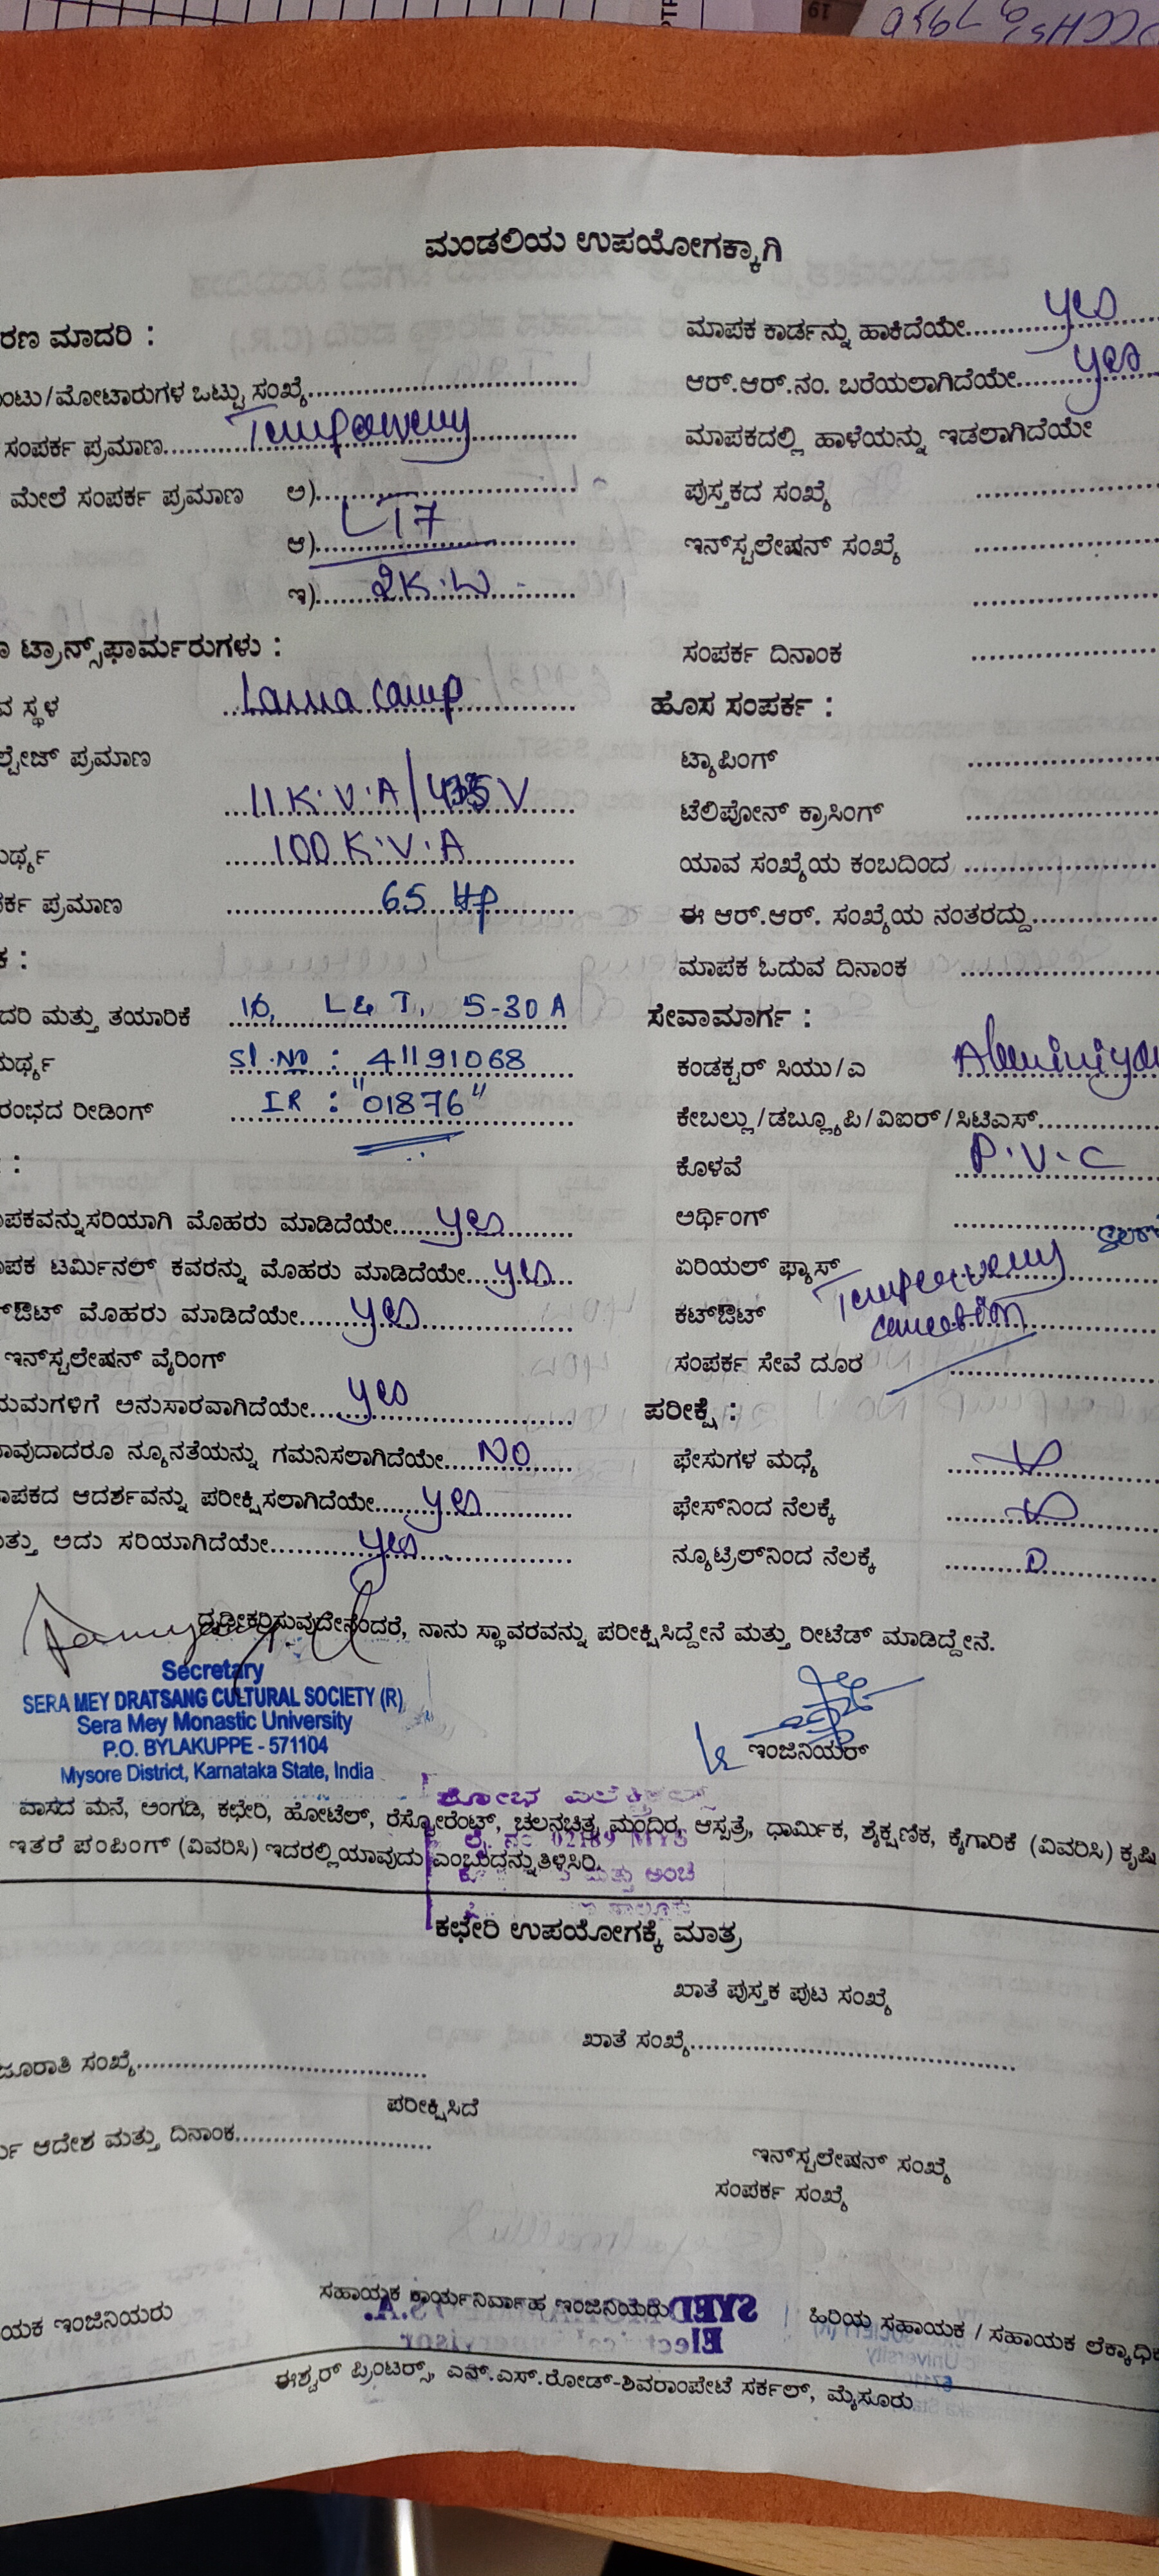 ಮಂಡಲಿಯ ಉಪಯೋಗಕ್ಕಾಗಿ
ರಣ ಮಾದರಿ :
ಂಟು/ಮೋಟಾರುಗಳ ಒಟ್ಟು ಸಂಖ್ಯೆ
ಸಂಪರ್ಕ ಪ್ರಮಾಣ
ಮೇಲೆ ಸಂಪರ್ಕ ಪ್ರಮಾಣ ಅ)
ಆ) LT7
ಇ) 2K.W
ಟ್ರಾನ್ಸ್‌ಫಾರ್ಮರುಗಳು :
ಸ್ಥಳ Lama camp
ಲ್ಟೇಜ್ ಪ್ರಮಾಣ
11 K.V.A/ V
ರ್ಥ್ಯ 100 K.V.A
ರ್ಕ ಪ್ರಮಾಣ 65 Hp
ಕ :
ದರಿ ಮತ್ತು ತಯಾರಿಕೆ L&T, 5-30 A
ರ್ಥ್ಯ Sl.No : 41191068
ರಂಭದ ರೀಡಿಂಗ್ IR : "01876"
:
ಪಕವನ್ನು ಸರಿಯಾಗಿ ಮೊಹರು ಮಾಡಿದೆಯೇ yes
ಪಕ ಟರ್ಮಿನಲ್ ಕವರನ್ನು ಮೊಹರು ಮಾಡಿದೆಯೇ yes
ಔಟ್ ಮೊಹರು ಮಾಡಿದೆಯೇ yes
ಇನ್‌ಸ್ಟಲೇಷನ್ ವೈರಿಂಗ್
ಯಮಗಳಿಗೆ ಅನುಸಾರವಾಗಿದೆಯೇ yes
ಾವುದಾದರೂ ನ್ಯೂನತೆಯನ್ನು ಗಮನಿಸಲಾಗಿದೆಯೇ NO
ಾಪಕದ ಆದರ್ಶವನ್ನು ಪರೀಕ್ಷಿಸಲಾಗಿದೆಯೇ yes
ತ್ತು ಅದು ಸರಿಯಾಗಿದೆಯೇ yes
ಮಾಪಕ ಕಾರ್ಡನ್ನು ಹಾಕಿದೆಯೇ yes
ಆರ್.ಆರ್.ನಂ. ಬರೆಯಲಾಗಿದೆಯೇ yes
ಮಾಪಕದಲ್ಲಿ ಹಾಳೆಯನ್ನು ಇಡಲಾಗಿದೆಯೇ
ಪುಸ್ತಕದ ಸಂಖ್ಯೆ
ಇನ್‌ಸ್ಟಲೇಷನ್ ಸಂಖ್ಯೆ
ಸಂಪರ್ಕ ದಿನಾಂಕ
ಹೊಸ ಸಂಪರ್ಕ :
ಟ್ಯಾಪಿಂಗ್
ಟೆಲಿಪೋನ್ ಕ್ರಾಸಿಂಗ್
ಯಾವ ಸಂಖ್ಯೆಯ ಕಂಬದಿಂದ
ಈ ಆರ್.ಆರ್. ಸಂಖ್ಯೆಯ ನಂತರದ್ದು
ಮಾಪಕ ಓದುವ ದಿನಾಂಕ
ಸೇವಾಮಾರ್ಗ :
ಕಂಡಕ್ಟರ್ ಸಿಯು/ಎ
ಕೇಬಲ್ಲು/ಡಬ್ಲ್ಯೂಪಿ/ವಿಐರ್/ಸಿಟಿಎಸ್
ಕೊಳವೆ P.V.C
ಅರ್ಥಿಂಗ್
ಏರಿಯಲ್ ಫ್ಯೂಸ್
ಕಟ್‌ಔಟ್
ಸಂಪರ್ಕ ಸೇವೆ ದೂರ
ಪರೀಕ್ಷೆ :
ಫೇಸುಗಳ ಮಧ್ಯೆ
ಫೇಸ್‌ನಿಂದ ನೆಲಕ್ಕೆ
ನ್ಯೂಟ್ರಲ್‌ನಿಂದ ನೆಲಕ್ಕೆ
ದೃಢೀಕರಿಸುವುದೇನೆಂದರೆ, ನಾನು ಸ್ಥಾವರವನ್ನು ಪರೀಕ್ಷಿಸಿದ್ದೇನೆ ಮತ್ತು ರೀಟೆಡ್ ಮಾಡಿದ್ದೇನೆ.
Secretary
SERA MEY DRATSANG CULTURAL SOCIETY (R)
Sera Mey Monastic University
P.O. BYLAKUPPE - 571104
Mysore District, Karnataka State, India
ಇಂಜಿನಿಯರ್
ವಾಸದ ಮನೆ, ಅಂಗಡಿ, ಕಛೇರಿ, ಹೋಟೆಲ್, ರೆಸ್ಟೋರೆಂಟ್, ಚಲನಚಿತ್ರ ಮಂದಿರ, ಆಸ್ಪತ್ರೆ, ಧಾರ್ಮಿಕ, ಶೈಕ್ಷಣಿಕ, ಕೈಗಾರಿಕೆ (ವಿವರಿಸಿ) ಕೃಷಿ
ಇತರೆ ಪಂಪಿಂಗ್ (ವಿವರಿಸಿ) ಇದರಲ್ಲಿ ಯಾವುದು ಎಂಬುದನ್ನು ತಿಳಿಸಿರಿ.
ಕಛೇರಿ ಉಪಯೋಗಕ್ಕೆ ಮಾತ್ರ
ಖಾತೆ ಪುಸ್ತಕ ಪುಟ ಸಂಖ್ಯೆ
ಖಾತೆ ಸಂಖ್ಯೆ
ಜೂರಾತಿ ಸಂಖ್ಯೆ
ಪರೀಕ್ಷಿಸಿದೆ
ಆದೇಶ ಮತ್ತು ದಿನಾಂಕ
ಇನ್‌ಸ್ಟಲೇಷನ್ ಸಂಖ್ಯೆ
ಸಂಪರ್ಕ ಸಂಖ್ಯೆ
ಯಕ ಇಂಜಿನಿಯರು
ಸಹಾಯಕ ಕಾರ್ಯನಿರ್ವಾಹ ಇಂಜಿನಿಯರು
ಹಿರಿಯ ಸಹಾಯಕ / ಸಹಾಯಕ ಲೆಕ್ಕಾಧಿಕ
ಈಶ್ವರ್ ಪ್ರಿಂಟರ್ಸ್, ಎನ್.ಎಸ್.ರೋಡ್-ಶಿವರಾಂಪೇಟೆ ಸರ್ಕಲ್, ಮೈಸೂರು